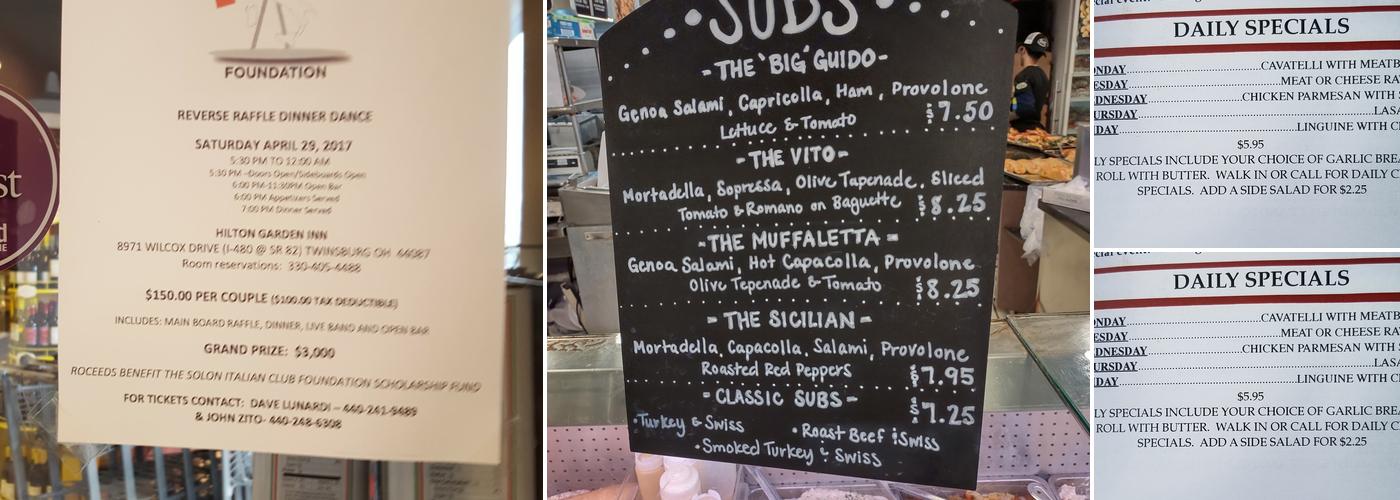 FOUNDATION
REVERSE RAFFLE DINNER DANCE
SATURDAY APRIL 29, 2017
5:30 PM TO 12:00 AM
5:30 PM -Doors Open/Sideboards Open
6:00 PM-11:30PM Open Bar
6:00 PM Appetizers Served
7:00 PM Dinner Served
HILTON GARDEN INN
8971 WILCOX DRIVE (I-480 @ SR 82) TWINSBURG OH 44087
Room reservations: 330-405-4488
$150.00 PER COUPLE ($100.00 TAX DEDUCTIBLE)
INCLUDES: MAIN BOARD RAFFLE, DINNER, LIVE BAND AND OPEN BAR
GRAND PRIZE: $3,000
ROCEEDS BENEFIT THE SOLON ITALIAN CLUB FOUNDATION SCHOLARSHIP FUND
FOR TICKETS CONTACT: DAVE LUNARDI – 440-241-9489
& JOHN ZITO- 440-248-6308
st
SUBS
-THE "BIG" GUIDO-
Genoa Salami, Capricolla, Ham, Provolone
Lettuce & Tomato $7.50
-THE VITO-
Mortadella, Sopressa, Olive Tapenade, Sliced
Tomato & Romano on Baguette $8.25
-THE MUFFALETTA-
Genoa Salami, Hot Capacolla, Provolone
Olive Tepenade & Tomato $8.25
-THE SICILIAN-
Mortadella, Capacolla, Salami, Provolone
Roasted Red Peppers $7.95
-CLASSIC SUBS- $7.25
•Turkey & Swiss •Roast Beef & Swiss
•Smoked Turkey & Swiss
DAILY SPECIALS
ONDAY CAVATELLI WITH MEATB
ESDAY MEAT OR CHEESE RA
DNESDAY CHICKEN PARMESAN WITH S
URSDAY LASA
DAY LINGUINE WITH C
$5.95
LY SPECIALS INCLUDE YOUR CHOICE OF GARLIC BREA
ROLL WITH BUTTER. WALK IN OR CALL FOR DAILY C
SPECIALS. ADD A SIDE SALAD FOR $2.25
DAILY SPECIALS
ONDAY CAVATELLI WITH MEATB
ESDAY MEAT OR CHEESE RA
DNESDAY CHICKEN PARMESAN WITH S
URSDAY LASA
DAY LINGUINE WITH C
$5.95
LY SPECIALS INCLUDE YOUR CHOICE OF GARLIC BREA
ROLL WITH BUTTER. WALK IN OR CALL FOR DAILY C
SPECIALS. ADD A SIDE SALAD FOR $2.25